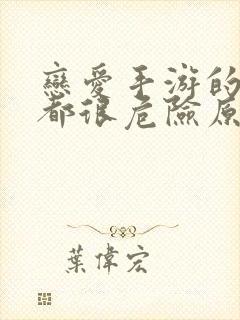 戀愛手游的
都很危險原
葉偉宏